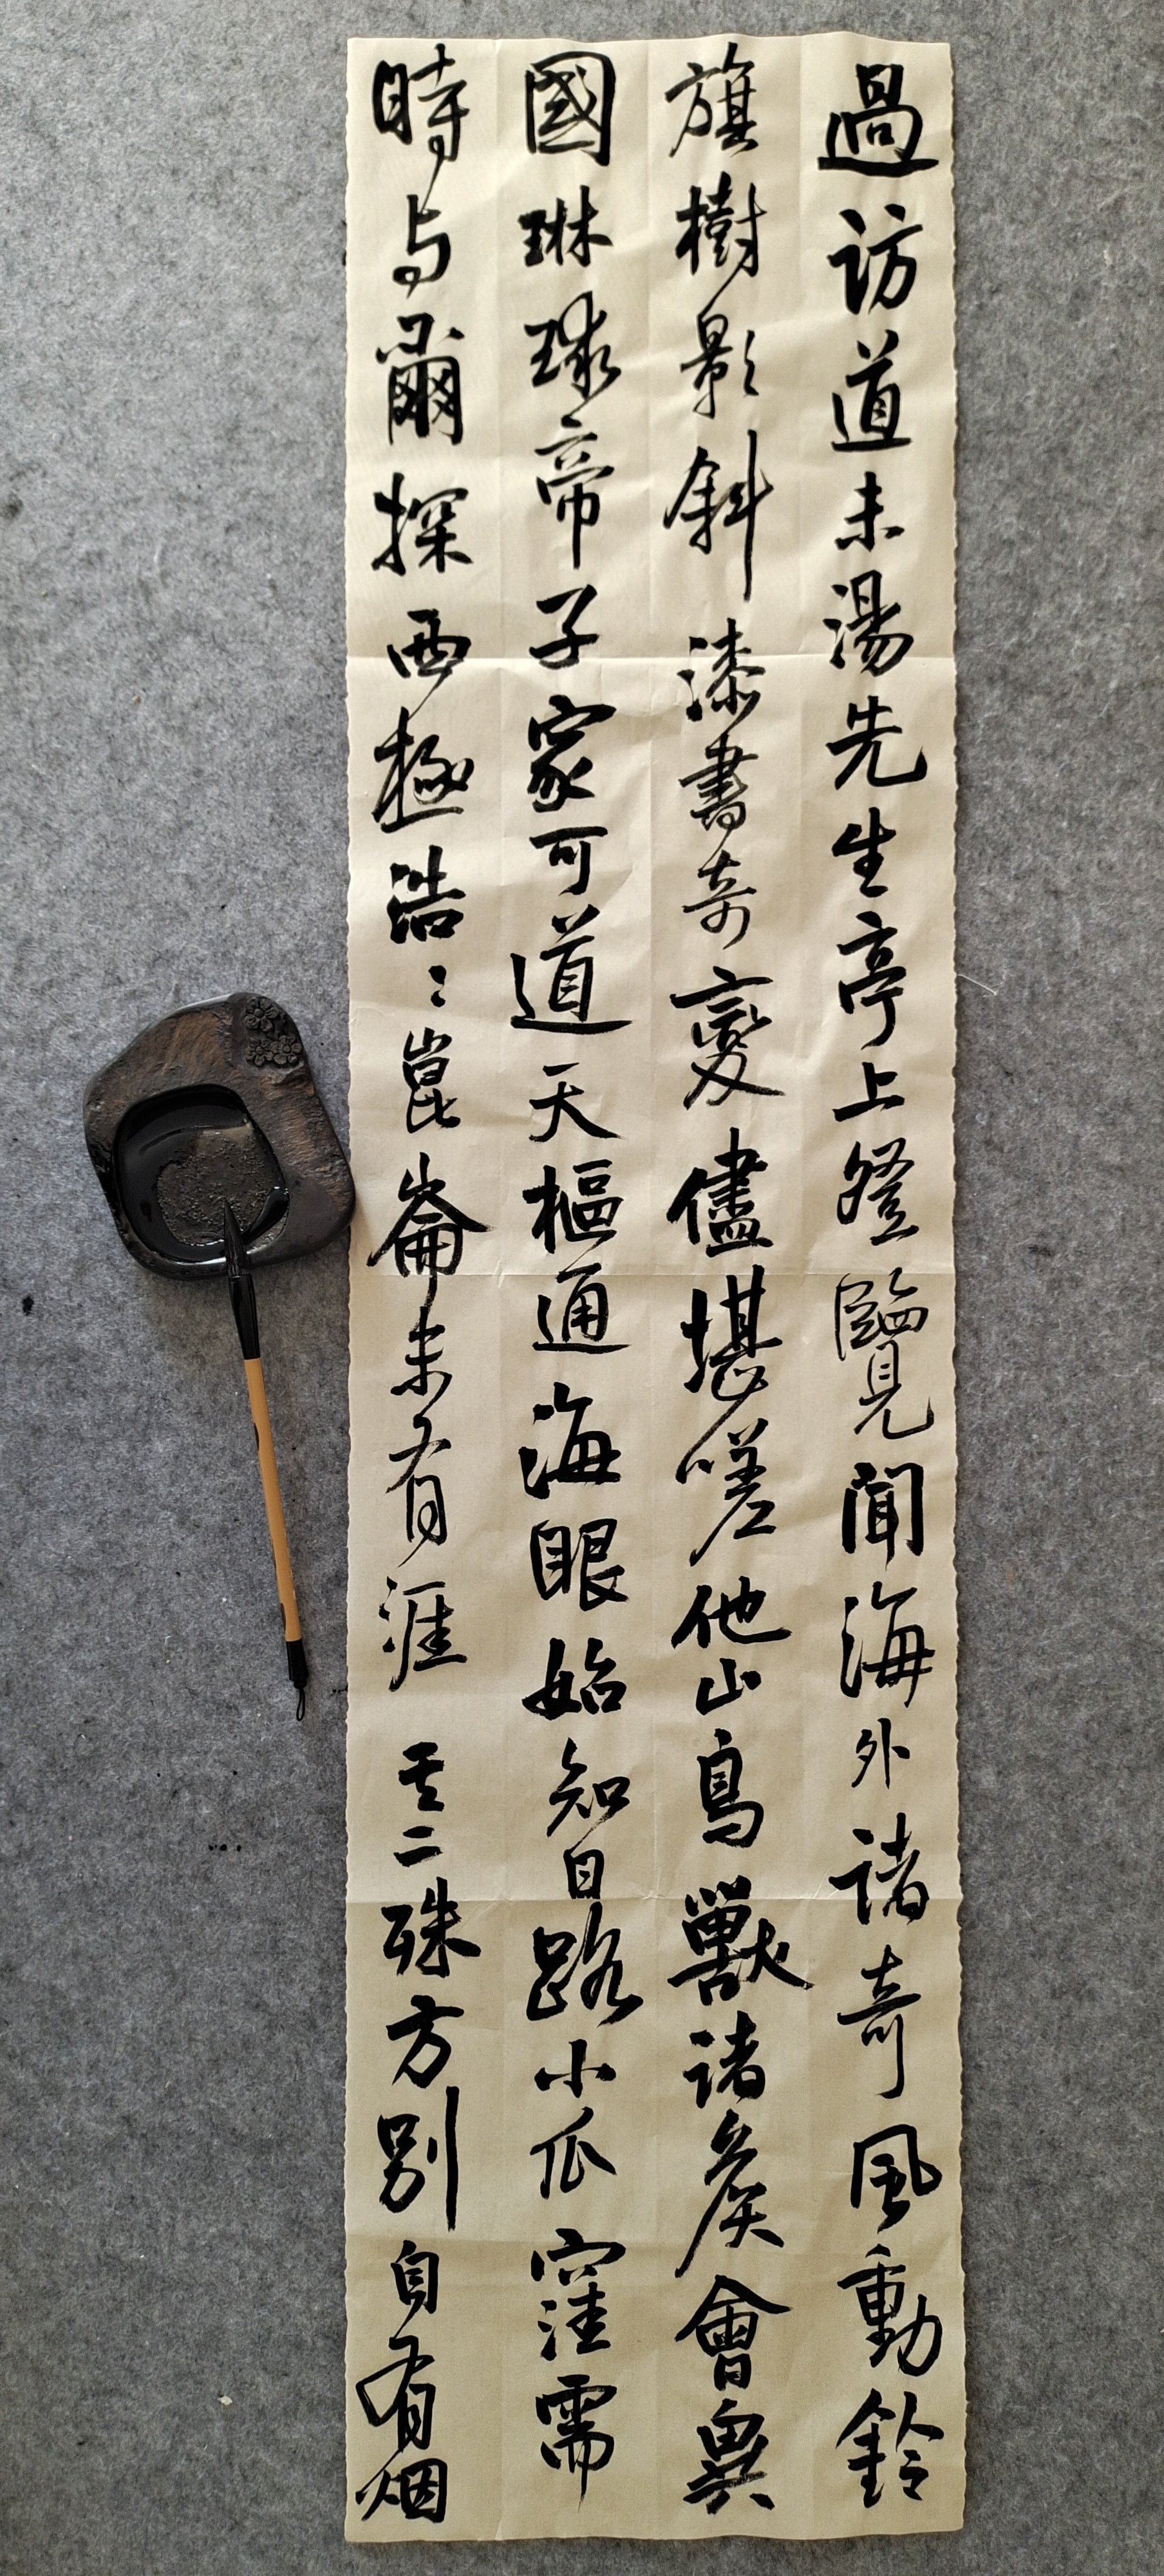 過訪道未湯先生亭上登覽聞海外諸奇風動鈴
旗樹影斜漆書奇變儘堪嗟他山鳥獸諸矦會異
國琳球帝子家可道天樞通海眼始知日路小瓜窪需
時与爾探西極浩〻崑崙未有涯 其二殊方別自有烟